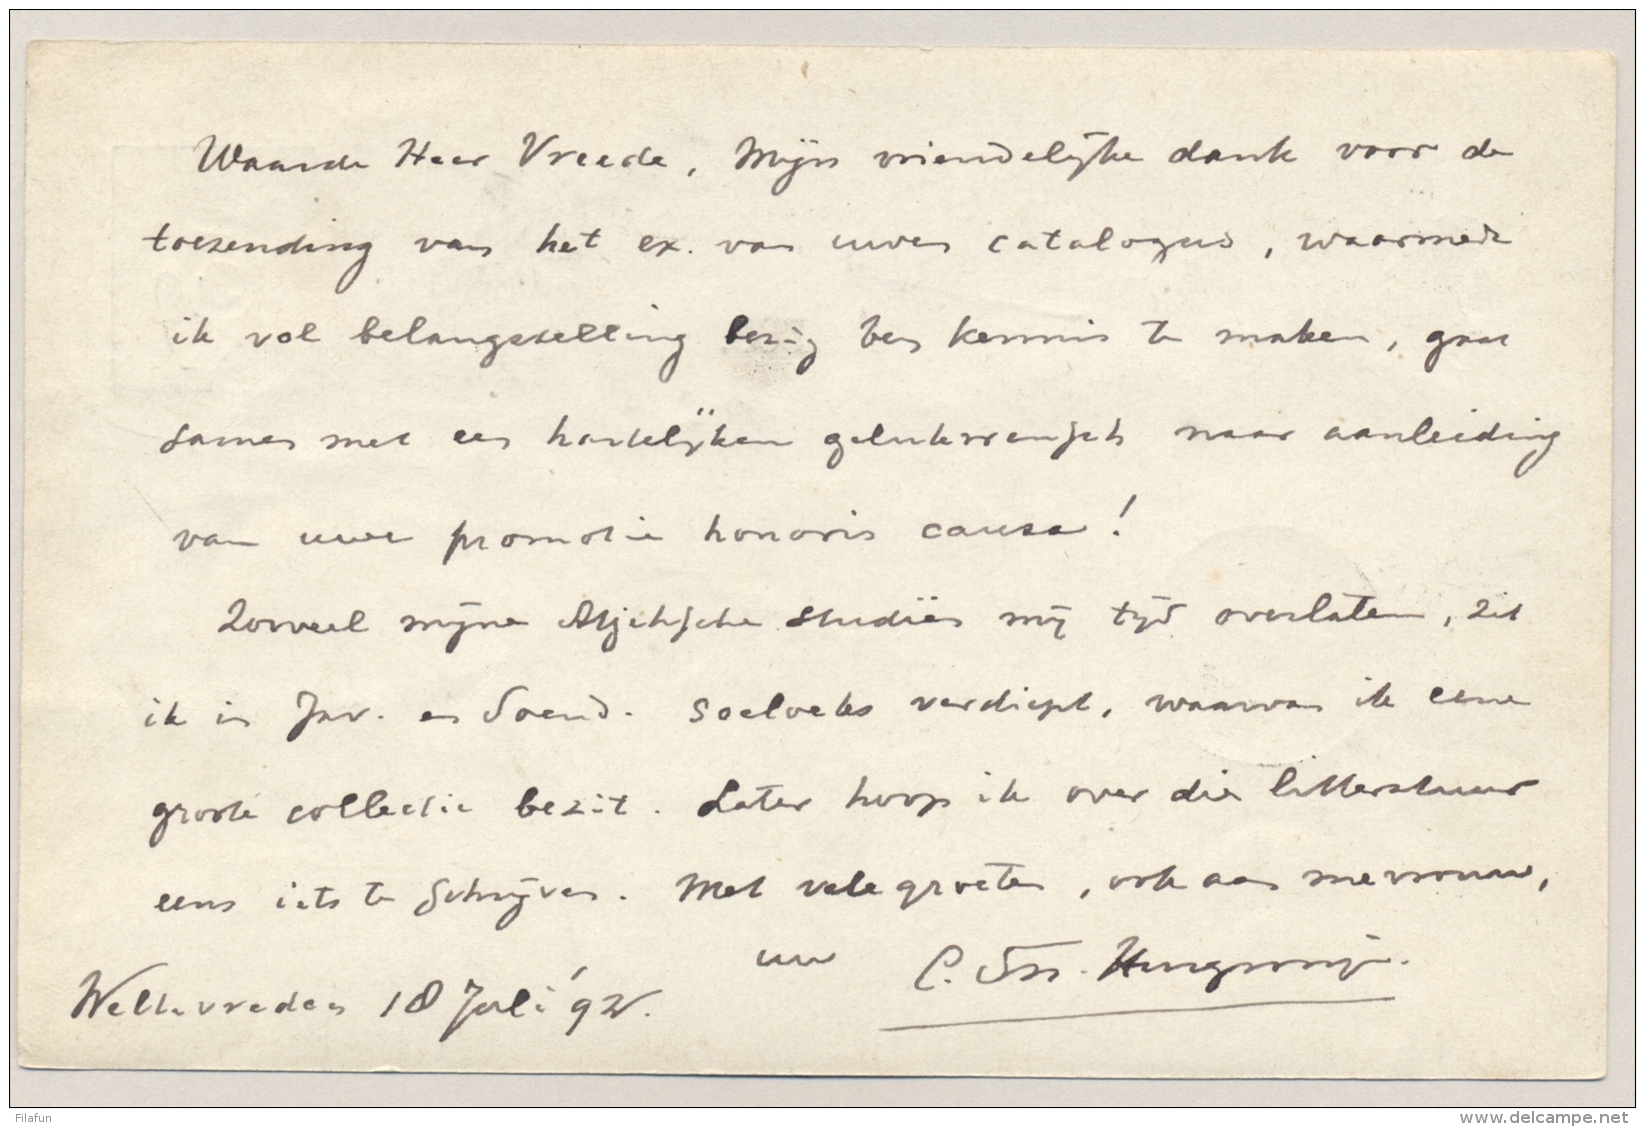 Waarde Heer Vreede, Mijn vriendelijke dank voor de
toezending van het ex. van uwen catalogus, waarmede
ik vol belangstelling bezig ben kennis te maken, gaat
samen met een hartelijken gelukwensch naar aanleiding
van uwe promotie honoris causa!
Zooveel mijne Atjèhsche studiën mij tijd overlaten, zit
ik in Jav. en Soend. soeloeks verdiept, waarvan ik eene
groote collectie bezit. Later hoop ik over die litteratuur
eens iets te schrijven. Met vele groeten, ook aan mevrouw,
uw C. Sn. Hurgronje.
Weltevreden 18 Juli '92.
Filafun
www.delcampe.net